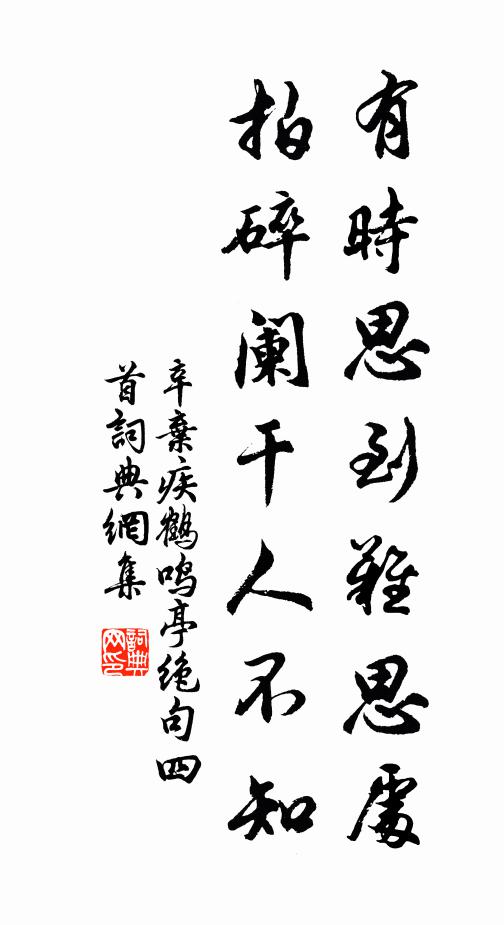 有時思到難思處
拍碎阑干人不知
辛棄疾鶴鳴亭絶句四
首詞典網集
詞典网印